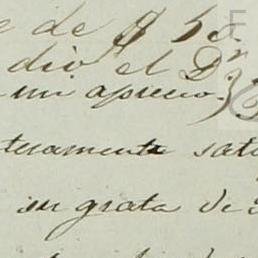 e de $ 50.
dio el Dr
mi aprecio.
teramente sati
su grata de